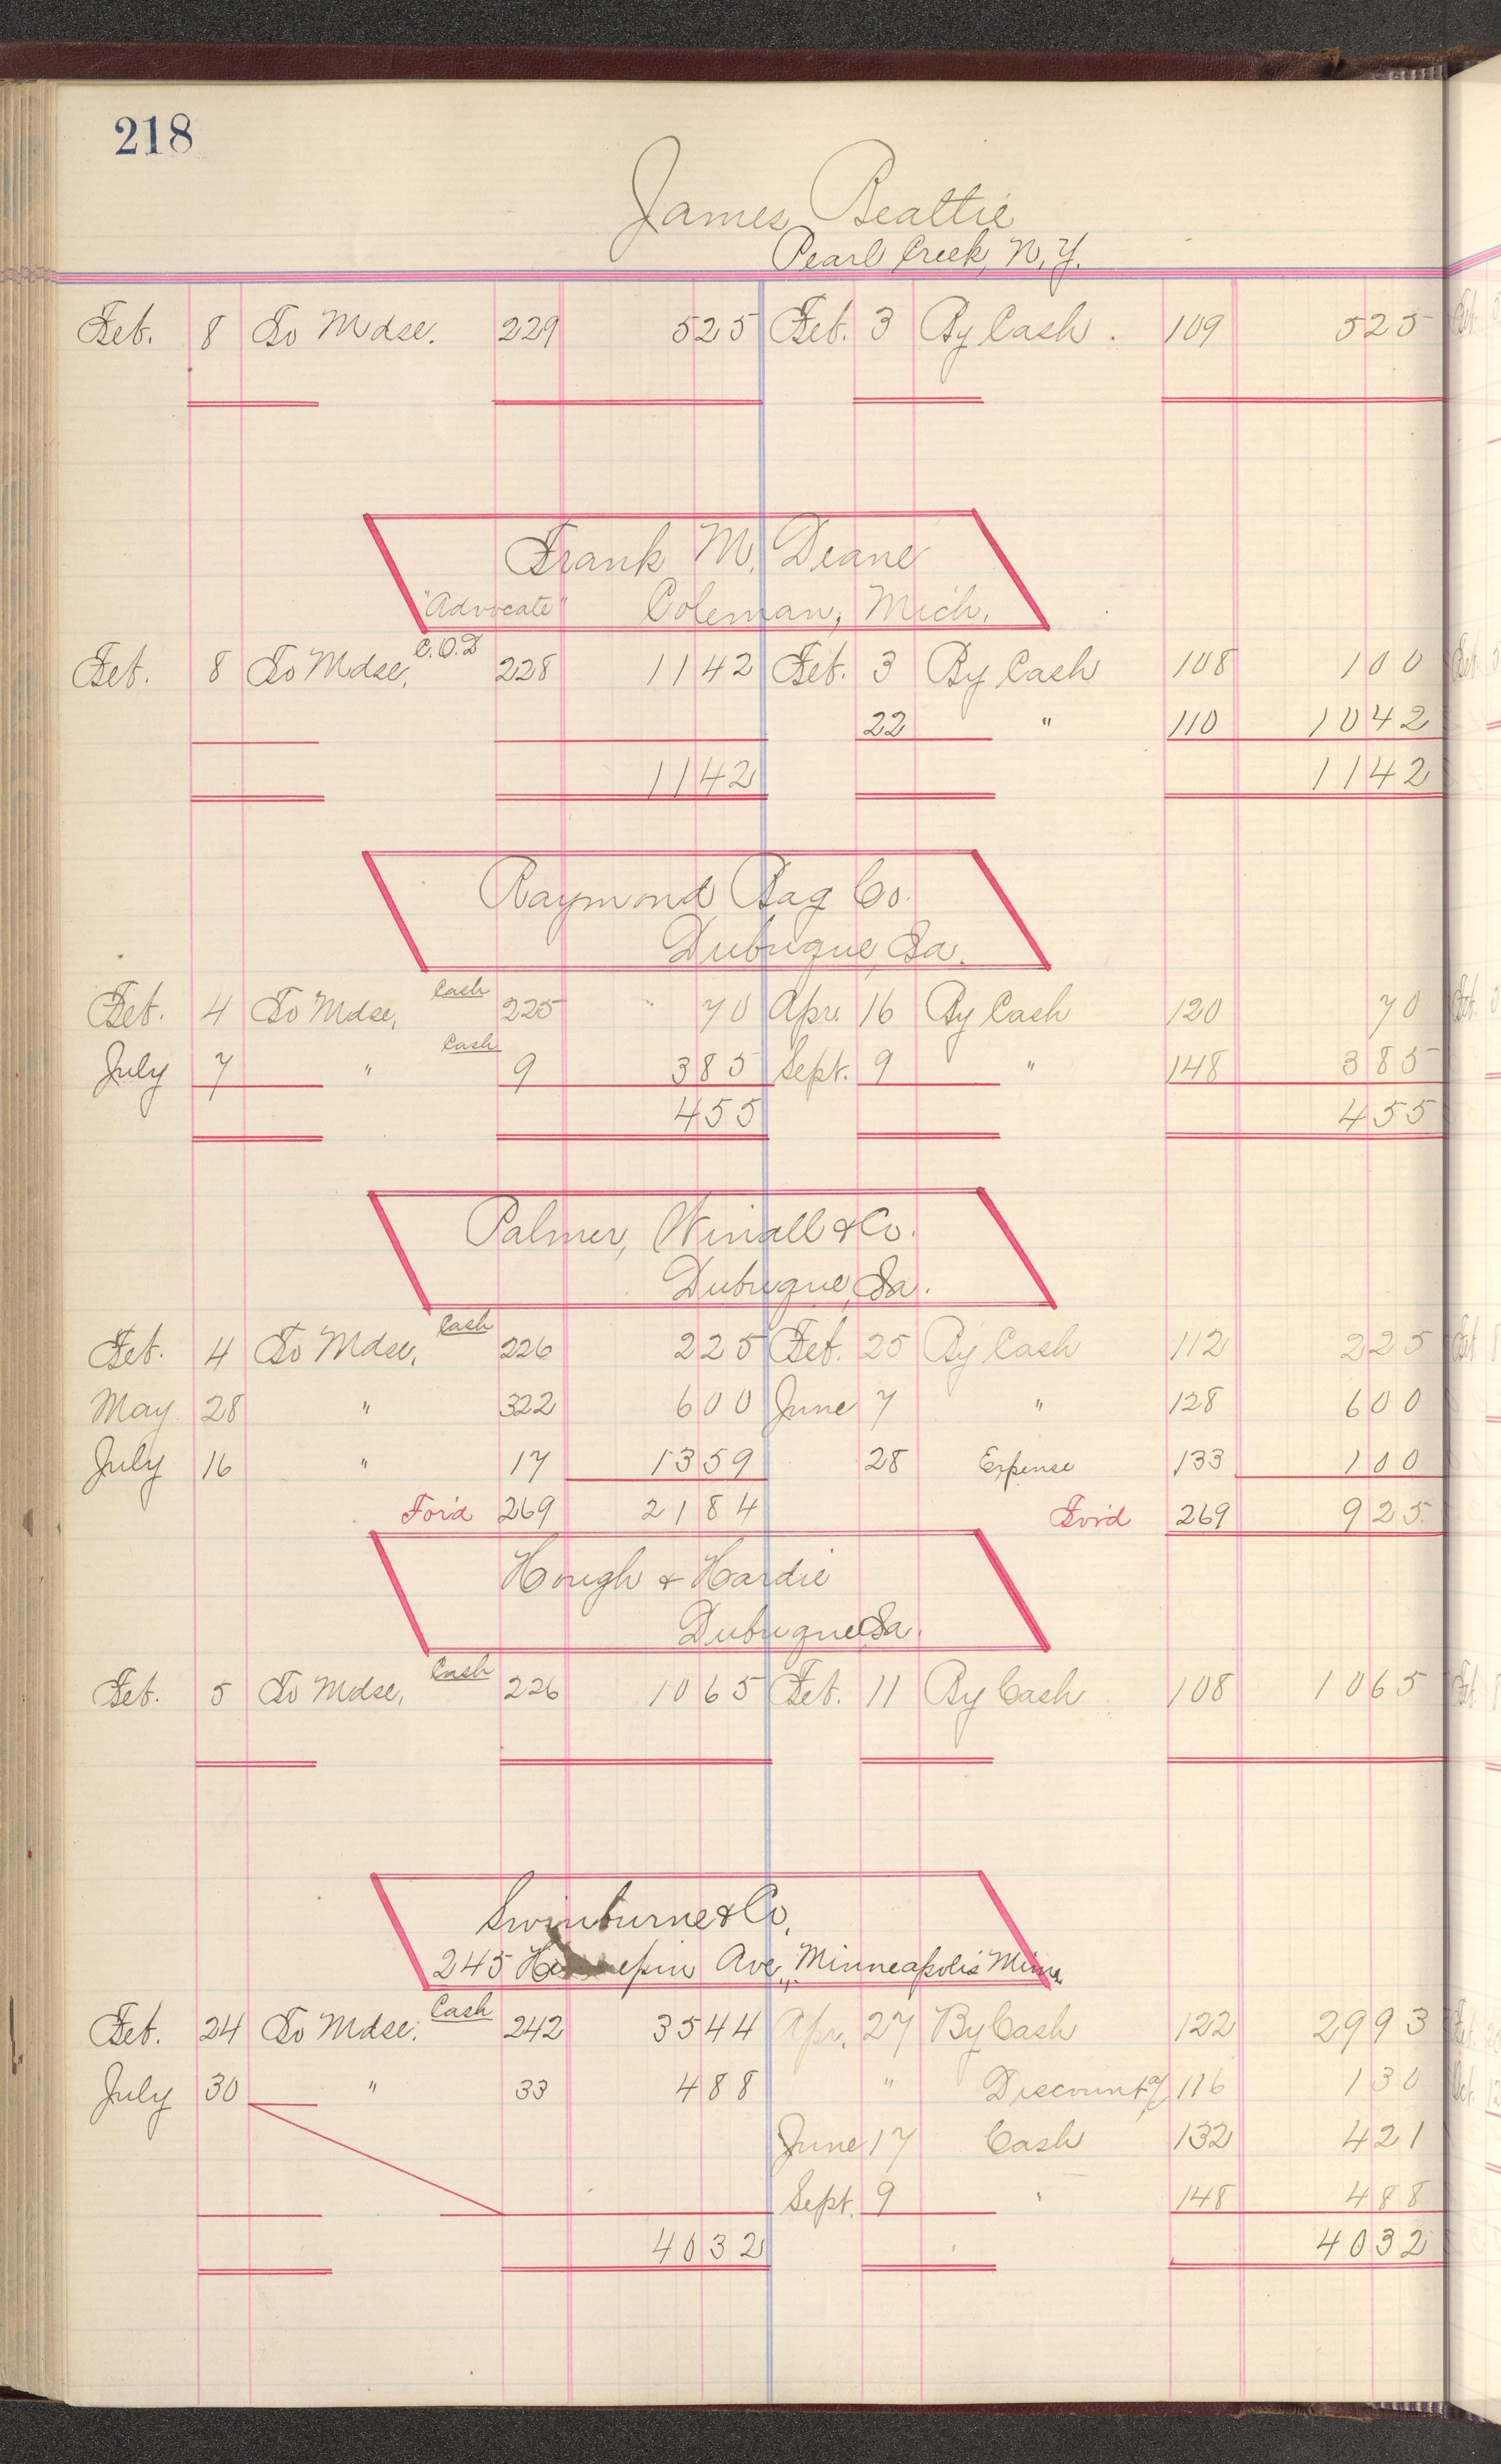 218
James Beattie
Pearl Creek, N.Y.
Feb. 8 To Mdse. 229 525 Feb. 3 By Cash. 109 525
Frank M. Deane
"Advocate" Coleman, Mich.
Feb. 8 To Mdse, C.O.D 228 1142 Feb. 3 By Cash 108 100
22 " 110 1042
1142 1142
Raymond Bag Co.
Dubuque, Ia.
Feb. 4 To Mdse, Cash 225 70 Apr. 16 By Cash 120 70
July 7 " Cash 9 385 Sept. 9 " 148 385
455 455
Palmer, Winall & Co.
Dubuque, Ia.
Feb. 4 To Mdse, Cash 226 225 Feb. 25 By Cash 112 225
May 28 " 322 600 June 7 " 128 600
July 16 " 17 1359 28 Expense 133 100
For'd 269 2184 For'd 269 925
Hough & Hardie
Dubuque Ia.
Feb. 5 To Mdse, Cash 226 1065 Feb. 11 By Cash 108 1065
Swinburne & Co.
245 Hennepin Ave., Minneapolis Minn
Feb. 24 To Mdse. Cash 242 3544 Apr. 27 By Cash 122 2993
July 30 " 33 488 " Discount 116 130
June 17 Cash 132 421
Sept. 9 " 148 488
4032 4032